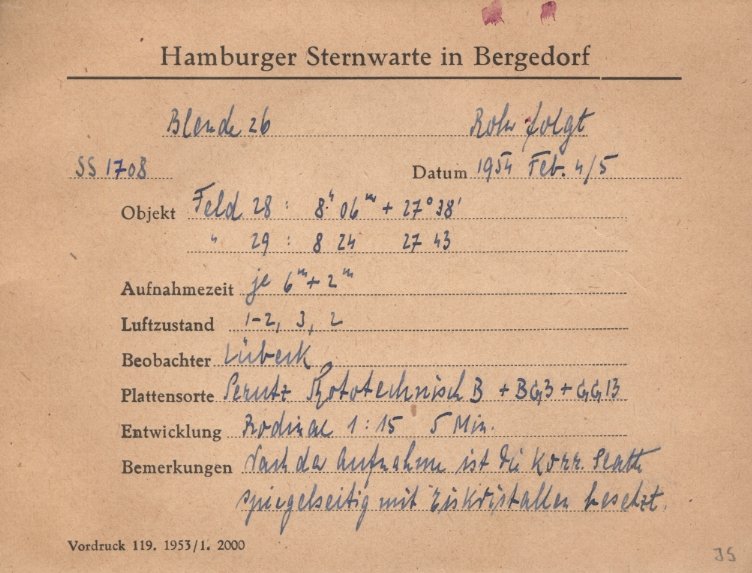 Hamburger Sternwarte in Bergedorf
Blende 26 Rohr folgt
SS 1708 Datum 1954 Feb. 4/5
Objekt Feld 28 : 8ʰ 06ᵐ + 27° 38'
" 29 : 8 24 27 43
Aufnahmezeit je 6ᵐ + 2ᵐ
Luftzustand 1-2, 3, 2
Beobachter Lübeck
Plattensorte Perutz Phototechnisch B + BG3 + GG13
Entwicklung Rodinal 1:15 5 Min.
Bemerkungen Nach der Aufnahme ist die Korr. Platte
spiegelseitig mit Eiskristallen besetzt.
Vordruck 119. 1953/1. 2000
JS